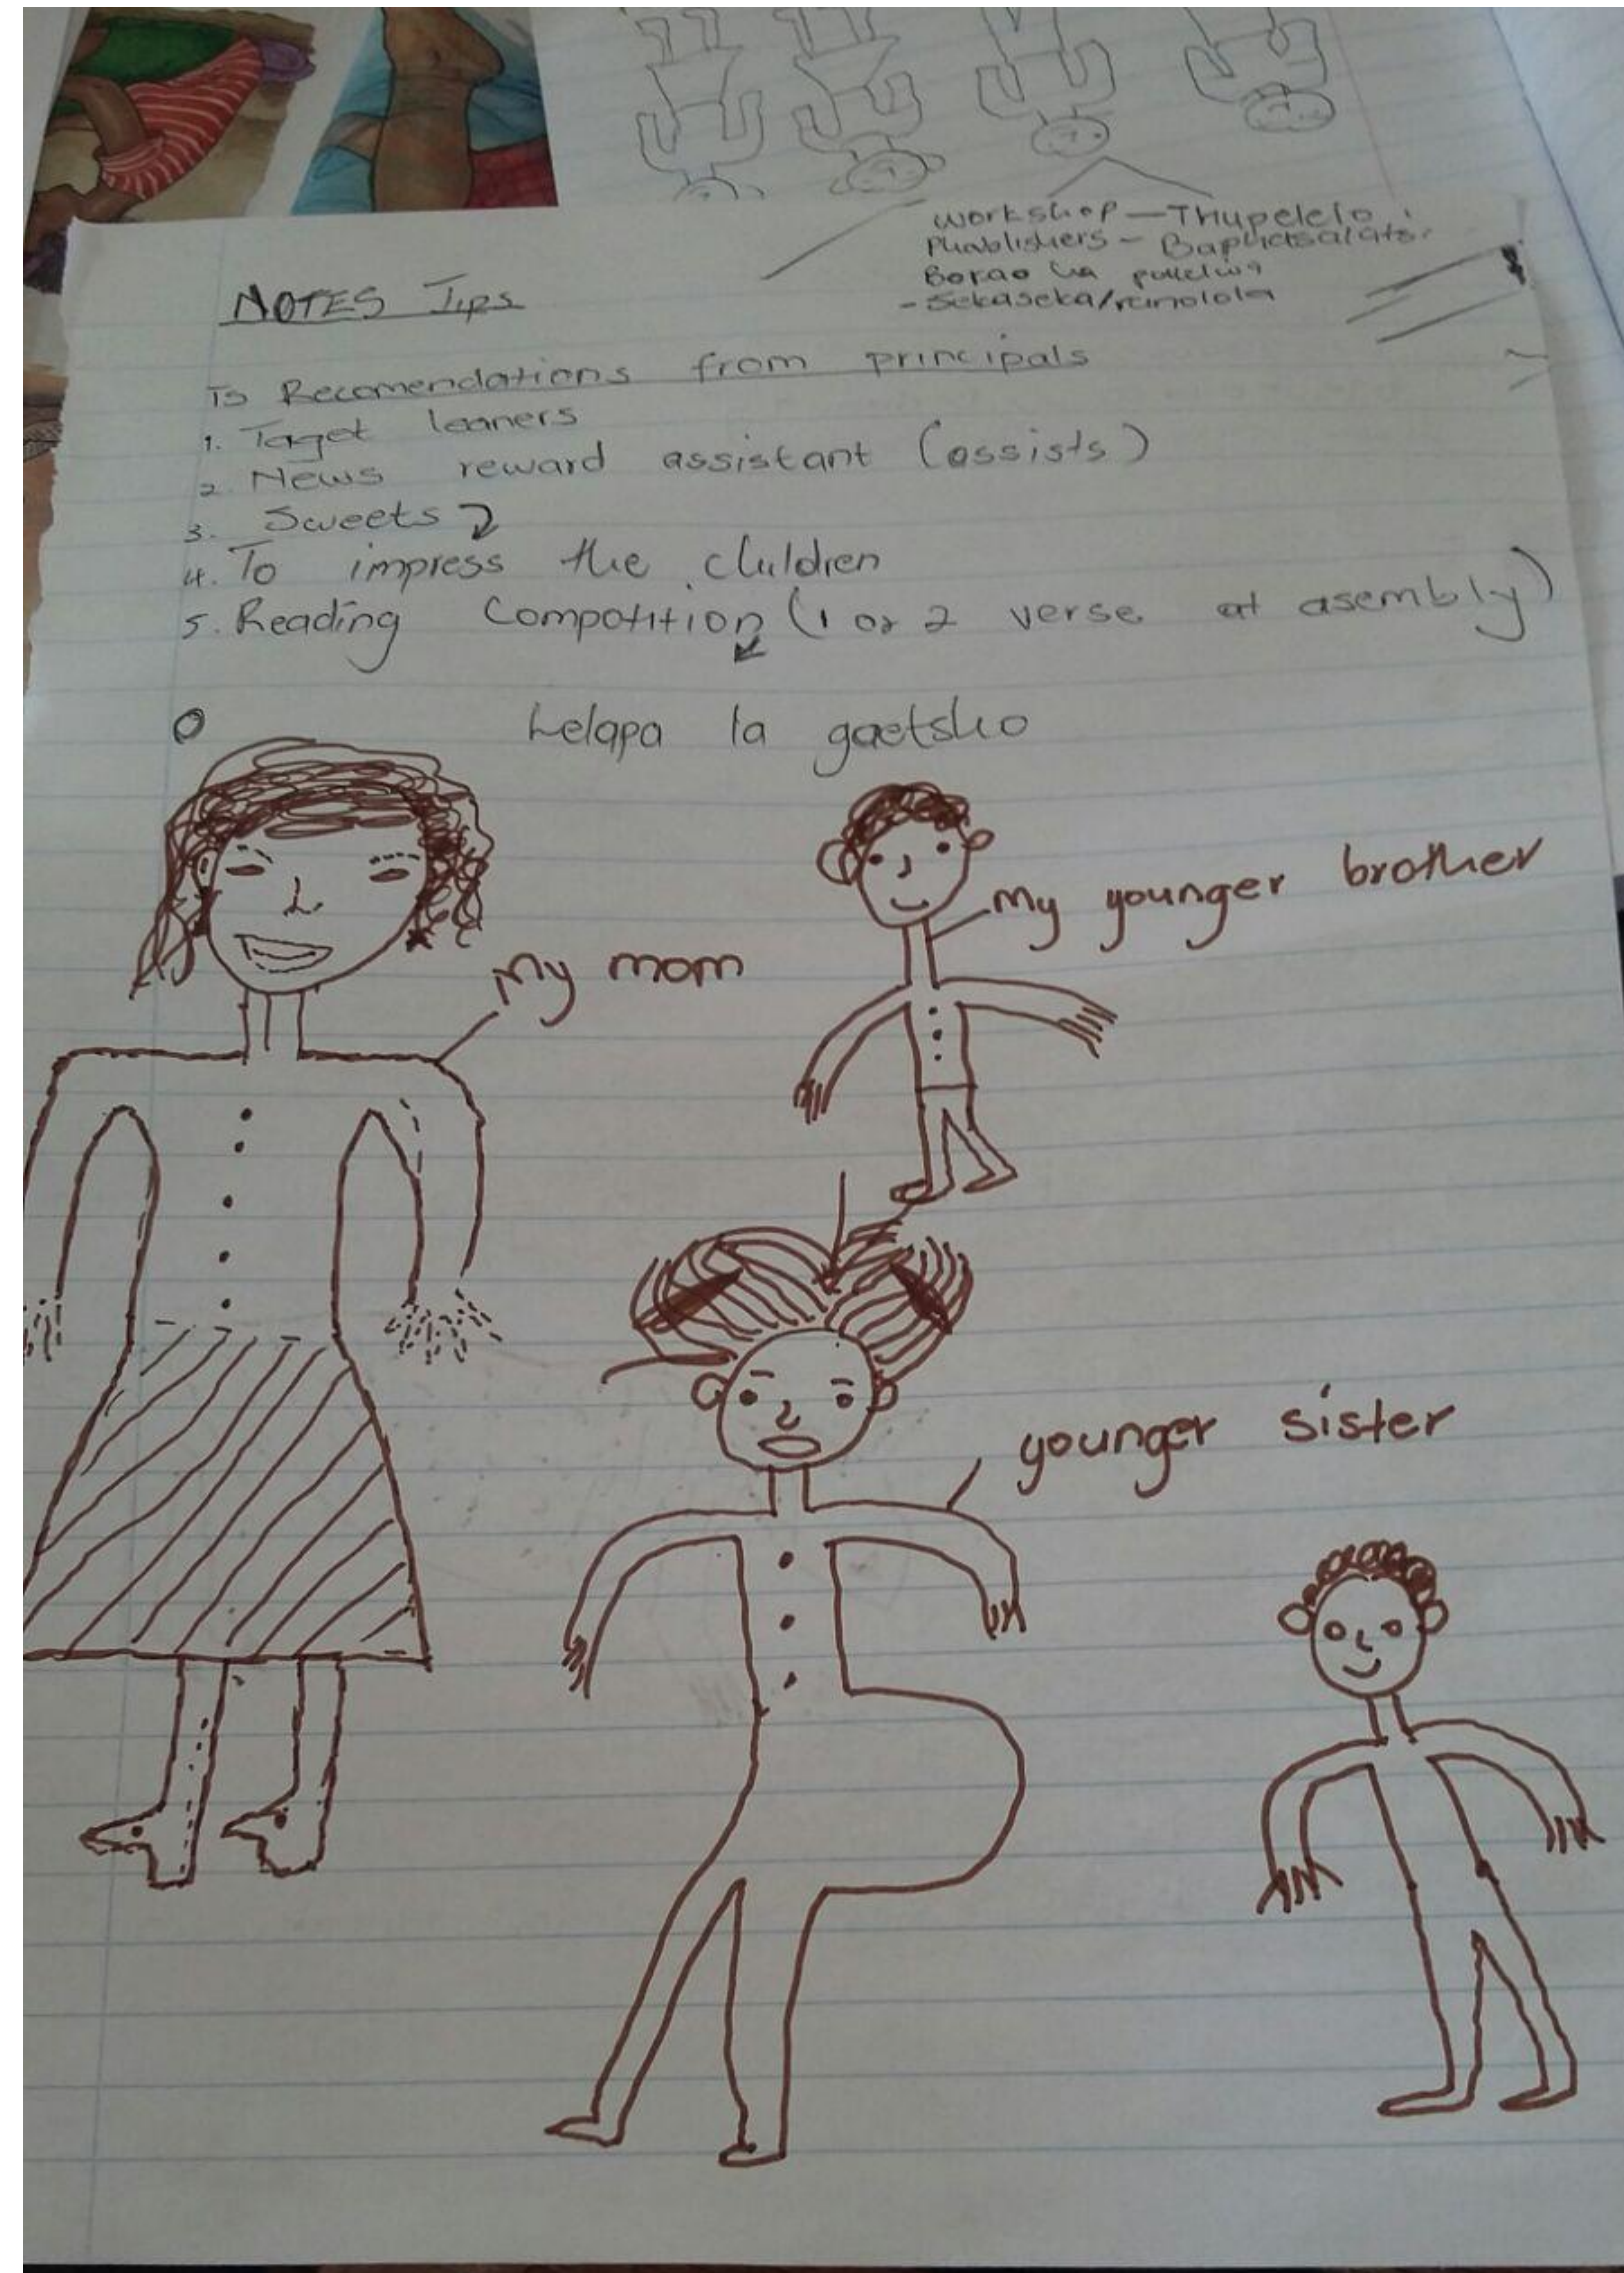 workshop — Thupelelo
Phablishers -
Borao
- Sekaseka/
NOTES Tips
Recomendations from principals
1. Taget leaners
2. News reward assistant (assists)
3. Sweets
4. To impress the children
5. Reading Compotition (1 or 2 verse at asembly)
Lelapa la gaetsho
My younger brother
My mom
younger sister